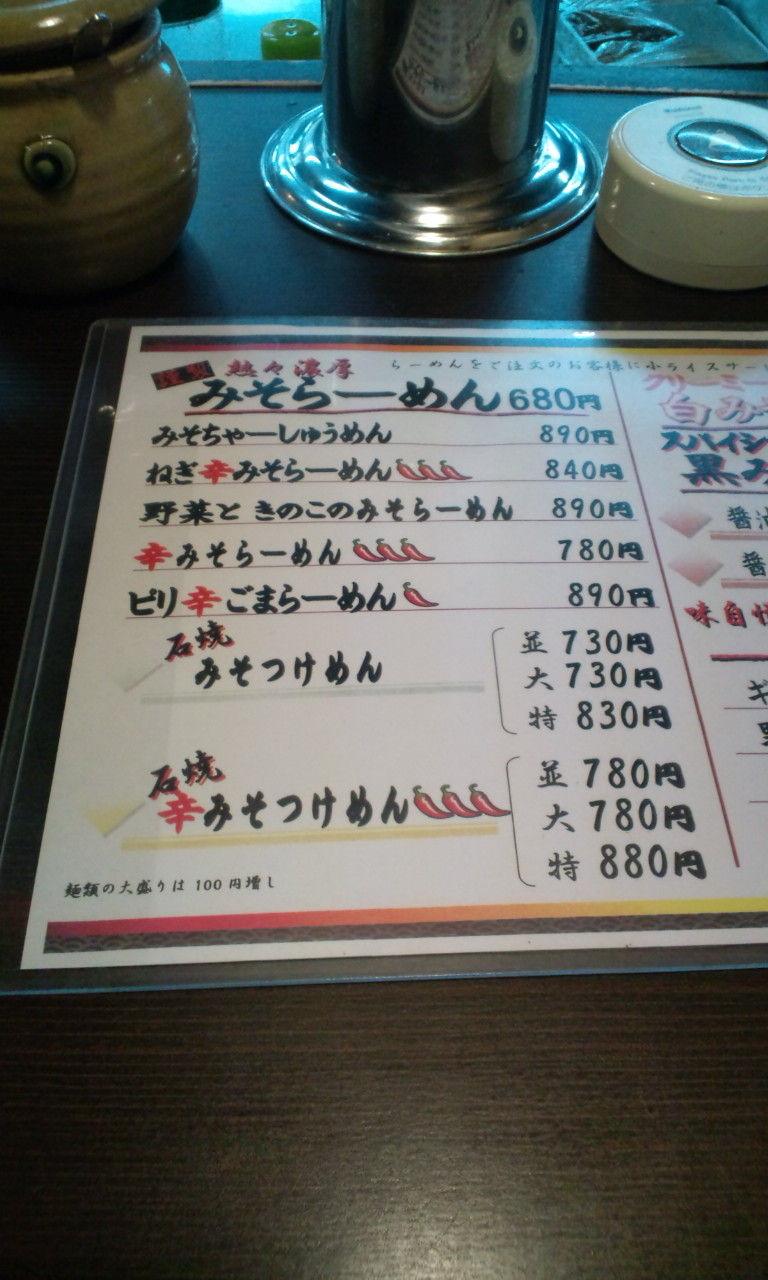 謹製 熱々濃厚
らーめんをご注文のお客様に小ライスサー
みそらーめん 680円
みそちゃーしゅうめん 890円
ねぎ辛みそらーめん 840円
野菜ときのこのみそらーめん 890円
辛みそらーめん 780円
ピリ辛ごまらーめん 890円
石焼
みそつけめん
並 730円
大 730円
特 830円
石焼
辛みそつけめん
並 780円
大 780円
特 880円
麺類の大盛りは 100円増し
クリーミー
白み
スパイシ
黒み
醤油
醤
味自慢
ギ